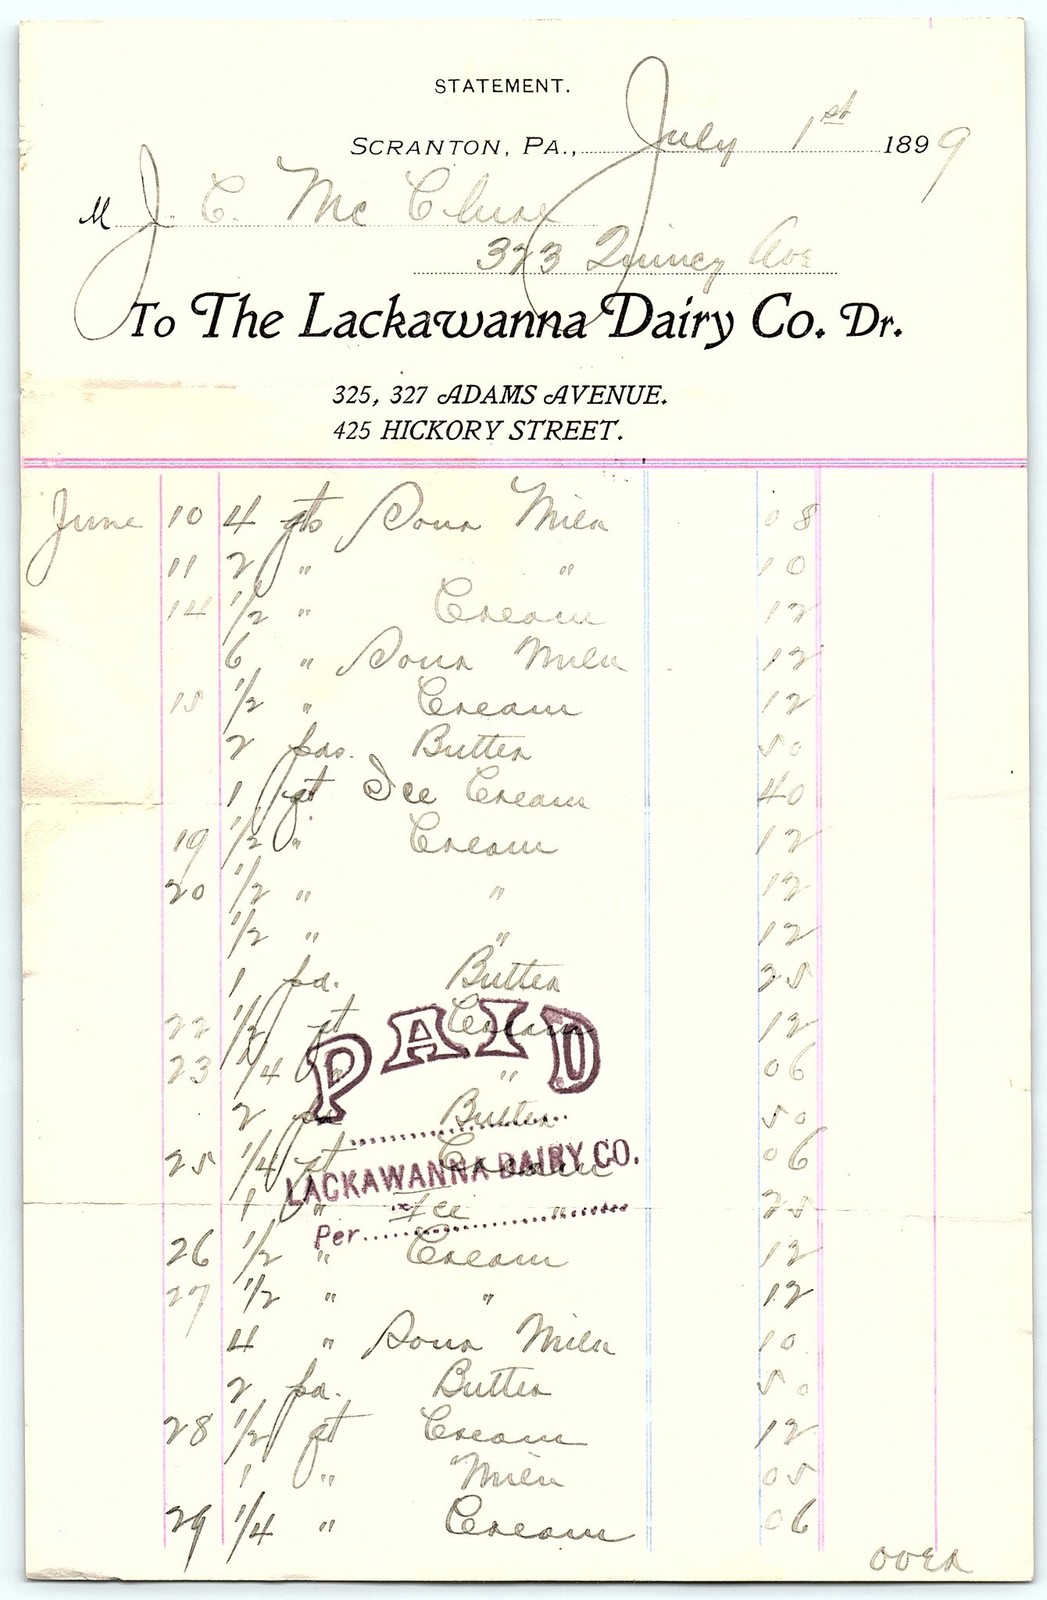 STATEMENT.
SCRANTON, PA., July 1st 1899
M J. C. Mc Clure
323 Quincy Ave
To The Lackawanna Dairy Co. Dr.
325, 327 ADAMS AVENUE.
425 HICKORY STREET.
June 10 4 qts Sour Milk 08
11 2 " " 10
14 1/2 " Cream 12
6 " Sour Milk 12
15 1/2 " Cream 12
2 pds. Butter 50
1 qt Ice Cream 40
19 1/2 " Cream 12
20 1/2 " " 12
1/2 " " 12
1 pd. Butter 25
22 1/2 qt Cream 12
23 1/4 " " 06
2 pd Butter 50
25 1/4 qt Cream 06
1 " Ice " 25
26 1/2 " Cream 12
27 1/2 " " 12
4 " Sour Milk 10
2 pd. Butter 50
28 1/2 qt Cream 12
1 " Milk 05
29 1/4 " Cream 06
over
PAID
LACKAWANNA DAIRY CO.
Per